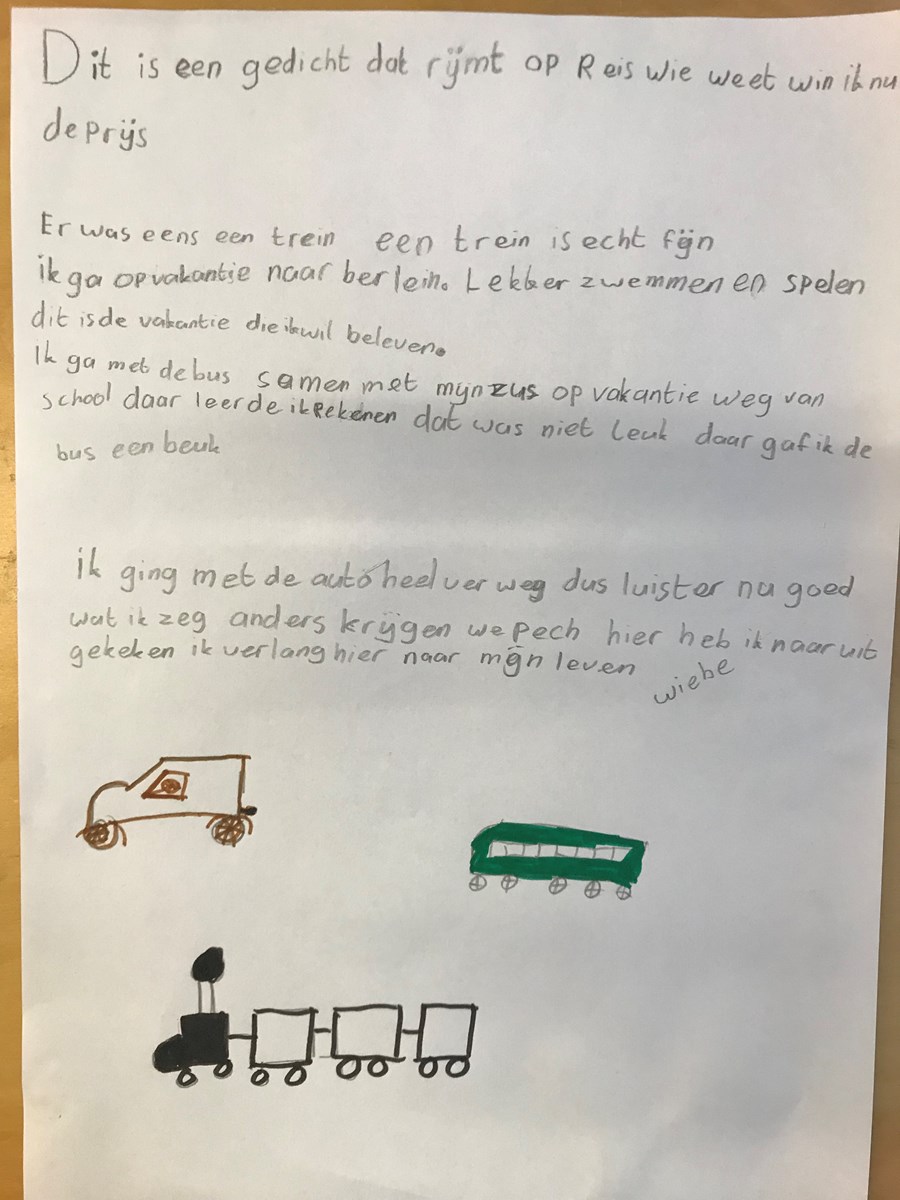 Dit is een gedicht dat rijmt op Reis wie weet win ik nu
de prijs
Er was eens een trein een trein is echt fijn
ik ga op vakantie naar berlein. Lekker zwemmen en spelen
dit is de vakantie die ik wil beleven.
Ik ga met de bus samen met mijn zus op vakantie weg van
school daar leerde ik Rekenen dat was niet leuk daar gaf ik de
bus een beuk
ik ging met de auto heel ver weg dus luister nu goed
wat ik zeg anders krijgen we pech hier heb ik naar uit
gekeken ik verlang hier naar mijn leven
wiebe